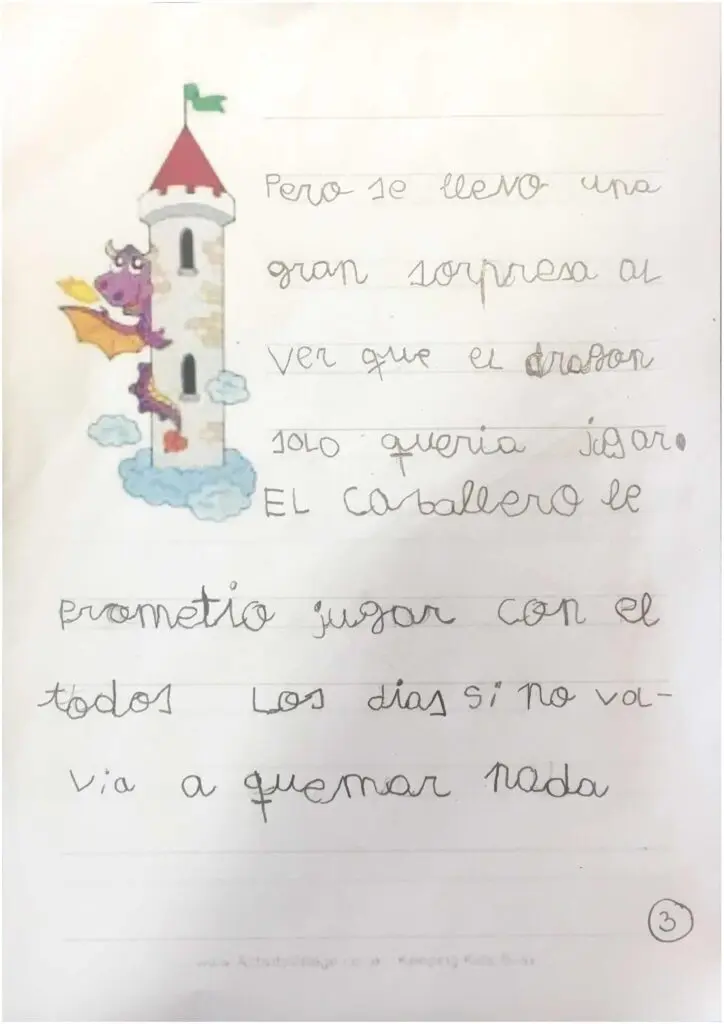 Pero se llevo una
gran sorpresa al
ver que el dragon
solo queria jugar.
EL caballero le
prometio jugar con el
todos los dias si no va-
via a quemar nada
3